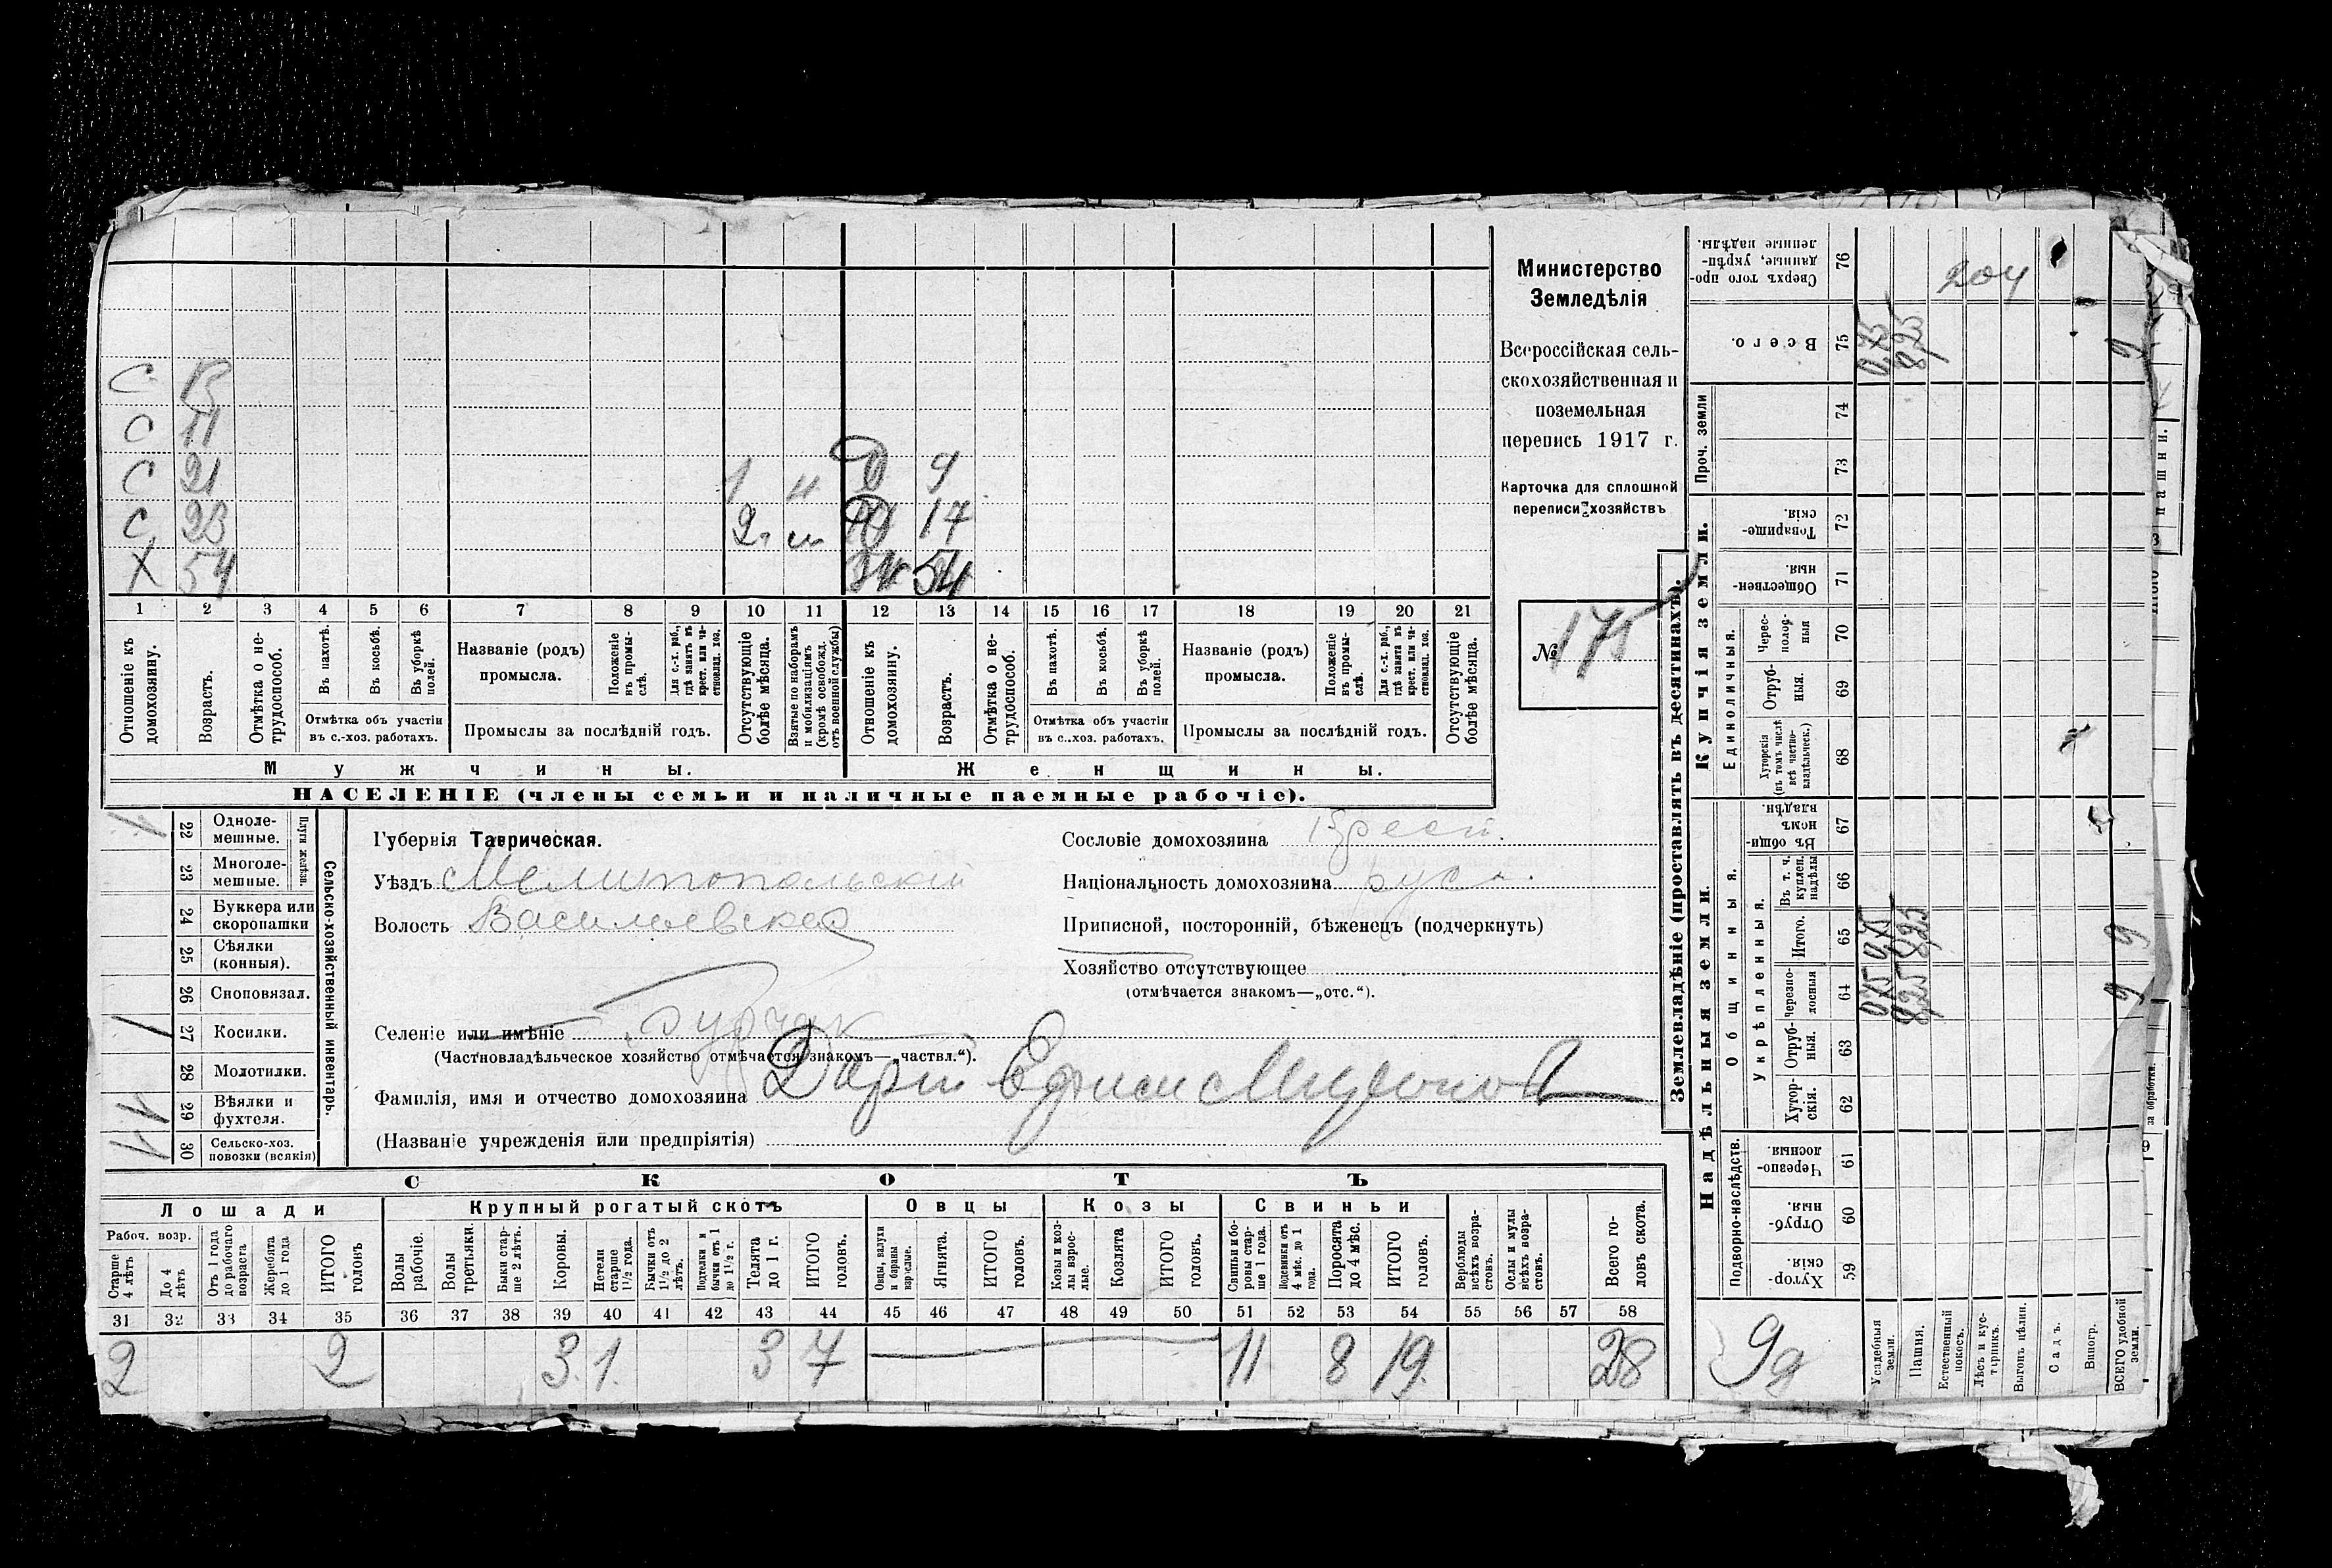 Министерство
Земледѣлія
Всероссійская сель-
скохозяйственная и
поземельная
перепись 1917 г.
Карточка для сплошной
переписи хозяйствъ
№ 175
С
С 11
С 21 1 9
С 23 2 17
Х 54 54
1 2 3 4 5 6 7 8 9 10 11 12 13 14 15 16 17 18 19 20 21
Отношеніе къ домохозяину.
Возрастъ.
Отмѣтка о не-трудоспособ.
Въ пахотѣ.
Въ косьбѣ.
Въ уборкѣ полей.
Отмѣтка объ участіи
въ с.-хоз. работахъ.
Названіе (родъ)
промысла.
Положеніе въ промы-слѣ.
Для с.-х. раб., гдѣ занятъ въ крест. или ча-стновлад. хоз.
Промыслы за послѣдній годъ.
Отсутствующіе болѣе мѣсяца.
Взятые по наборамъ и мобилизаціямъ (кромѣ освобожд. отъ военной службы)
Отношеніе къ домохозяину.
Возрастъ.
Отмѣтка о не-трудоспособ.
Въ пахотѣ.
Въ косьбѣ.
Въ уборкѣ полей.
Отмѣтка объ участіи
въ с.-хоз. работахъ.
Названіе (родъ)
промысла.
Положеніе въ промы-слѣ.
Для с.-х. раб., гдѣ занята въ крест. или ча-стновлад. хоз.
Промыслы за послѣдній годъ.
Отсутствующіе болѣе мѣсяца.
Мужчины.
Женщины.
НАСЕЛЕНІЕ (члены семьи и наличные наемные рабочіе).
Сельско-хозяйственный инвентарь.
Плуги желѣзн.
22 Одноле-мешные. 1
23 Многоле-мешные.
24 Буккера или скоропашки
25 Сѣялки (конныя).
26 Сноповязал.
27 Косилки. 1
28 Молотилки.
29 Вѣялки и фухтеля. 1
30 Сельско-хоз. повозки (всякія)
Губернія Таврическая.
Уѣздъ Мелитопольскій
Волость Васильевская
Селеніе или имѣніе Бурчак
(Частновладѣльческое хозяйство отмѣчается знакомъ—„частвл.“).
Фамилія, имя и отчество домохозяина Дарій Ефим
(Названіе учрежденія или предпріятія)
Сословіе домохозяина Крест.
Національность домохозяина русс.
Приписной, посторонній, бѣженецъ (подчеркнуть)
Хозяйство отсутствующее
(отмѣчается знакомъ—„отс.“).
СКОТЪ
Лошади
Рабоч. возр.
Старше 4 лѣтъ
До 4 лѣтъ
Отъ 1 года до рабочаго возраста
Жеребята до 1 года
ИТОГО головъ
Крупный рогатый скотъ
Волы рабочіе.
Волы третьяки.
Быки стар-ше 2 лѣтъ.
Коровы.
Нетели старше 1½ года.
Бычки отъ 1½ до 2 лѣтъ.
Подтелки и бычки отъ 1 до 1½ г.
Телята до 1 г.
ИТОГО головъ.
Овцы
Овцы, валухи и бараны взрослые.
Ягнята.
ИТОГО головъ.
Козы
Козы и коз-лы взрос-лые.
Козлята
ИТОГО головъ.
Свиньи
Свиньи и бо-ровы стар-ше 1 года.
Подсвинки отъ 4 мѣс. до 1 года.
Поросята до 4 мѣс.
ИТОГО головъ.
Верблюды всѣхъ возра-стовъ.
Ослы и мулы всѣхъ возра-стовъ.
Всего го-ловъ скота.
31 32 33 34 35 36 37 38 39 40 41 42 43 44 45 46 47 48 49 50 51 52 53 54 55 56 57 58
2 2 3 1 3 7 11 8 19 28
Землевладѣніе (проставлять въ десятинахъ).
Надѣльныя земли.
Купчія земли.
Подворно-наслѣдств.
Общинныя.
Укрѣпленныя.
Единоличныя.
Проч. земли
59 Хутор-скія.
60 Отруб-ныя.
61 Черезпо-лосныя.
62 Хутор-скія.
63 Отруб-ныя.
64 Черезпо-лосныя
65 Итого.
66 Въ т. ч. куплен. надѣлы
67 Въ общи-номъ владѣн.
68 Хуторскія (въ томъ числѣ всѣ частно-владѣльческ.)
69 Отруб-ныя.
70 Черес-полос-ныя
71 Обществен-ныя.
72 Товарище-скія.
73
74
75 Всего.
76 Сверхъ того про-данные, укрѣп-ленные надѣлы.
Усадебныя земли. 075 075 075
Пашня. 825 825 825
Естественный покосъ.
Лѣсъ и кус-тарникъ.
Выгонъ цѣлин.
Садъ.
Виногр.
ВСЕГО удобной земли. 9 9 9
204
9д